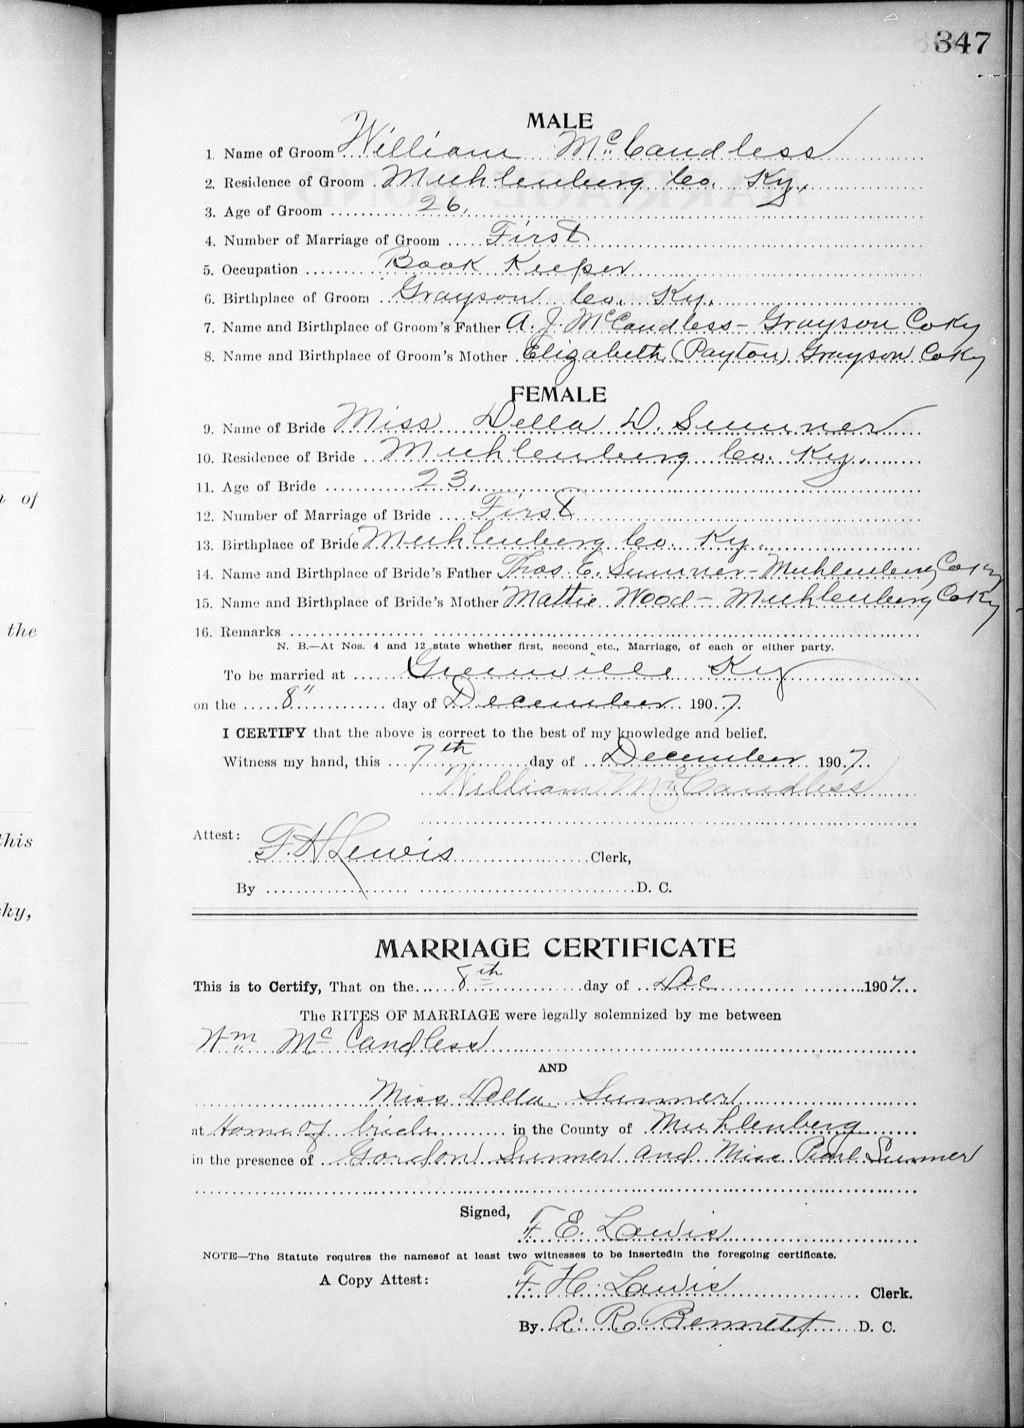 347
MALE
1. Name of Groom William McCandless
2. Residence of Groom Muhlenberg Co. Ky.
3. Age of Groom 26.
4. Number of Marriage of Groom First
5. Occupation Book Keeper
6. Birthplace of Groom Grayson Co. Ky.
7. Name and Birthplace of Groom's Father A. J. McCandless - Grayson Co Ky
8. Name and Birthplace of Groom's Mother Elizabeth (Payton) Grayson Co Ky
FEMALE
9. Name of Bride Miss Della D. Sumner
10. Residence of Bride Muhlenberg Co. Ky.
11. Age of Bride 23.
12. Number of Marriage of Bride First
13. Birthplace of Bride Muhlenberg Co. Ky.
14. Name and Birthplace of Bride's Father Thos. E. Sumner - Muhlenberg Co Ky
15. Name and Birthplace of Bride's Mother Mattie Wood - Muhlenberg Co Ky
16. Remarks
N. B.—At Nos. 4 and 12 state whether first, second etc., Marriage, of each or either party.
To be married at Greenville Ky
on the 8" day of December 1907.
I CERTIFY that the above is correct to the best of my knowledge and belief.
Witness my hand, this 7th day of December 1907.
William McCandless
Attest:
F. H. Lewis Clerk,
By D. C.
MARRIAGE CERTIFICATE
This is to Certify, That on the 8th day of Dec 1907
The RITES OF MARRIAGE were legally solemnized by me between
Wm McCandless
AND
Miss Della Sumner
at Home of bride in the County of Muhlenberg
in the presence of Gordon Sumner and Miss Pearl Sumner
Signed, F. E. Lewis
NOTE—The Statute requires the namesof at least two witnesses to be insertedin the foregoing certificate.
A Copy Attest: F. H. Lewis Clerk.
By A. R. Bennett D. C.
of
the
this
ky,